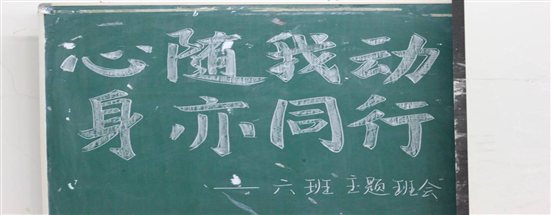 心随我动
身亦同行
——六班主题班会